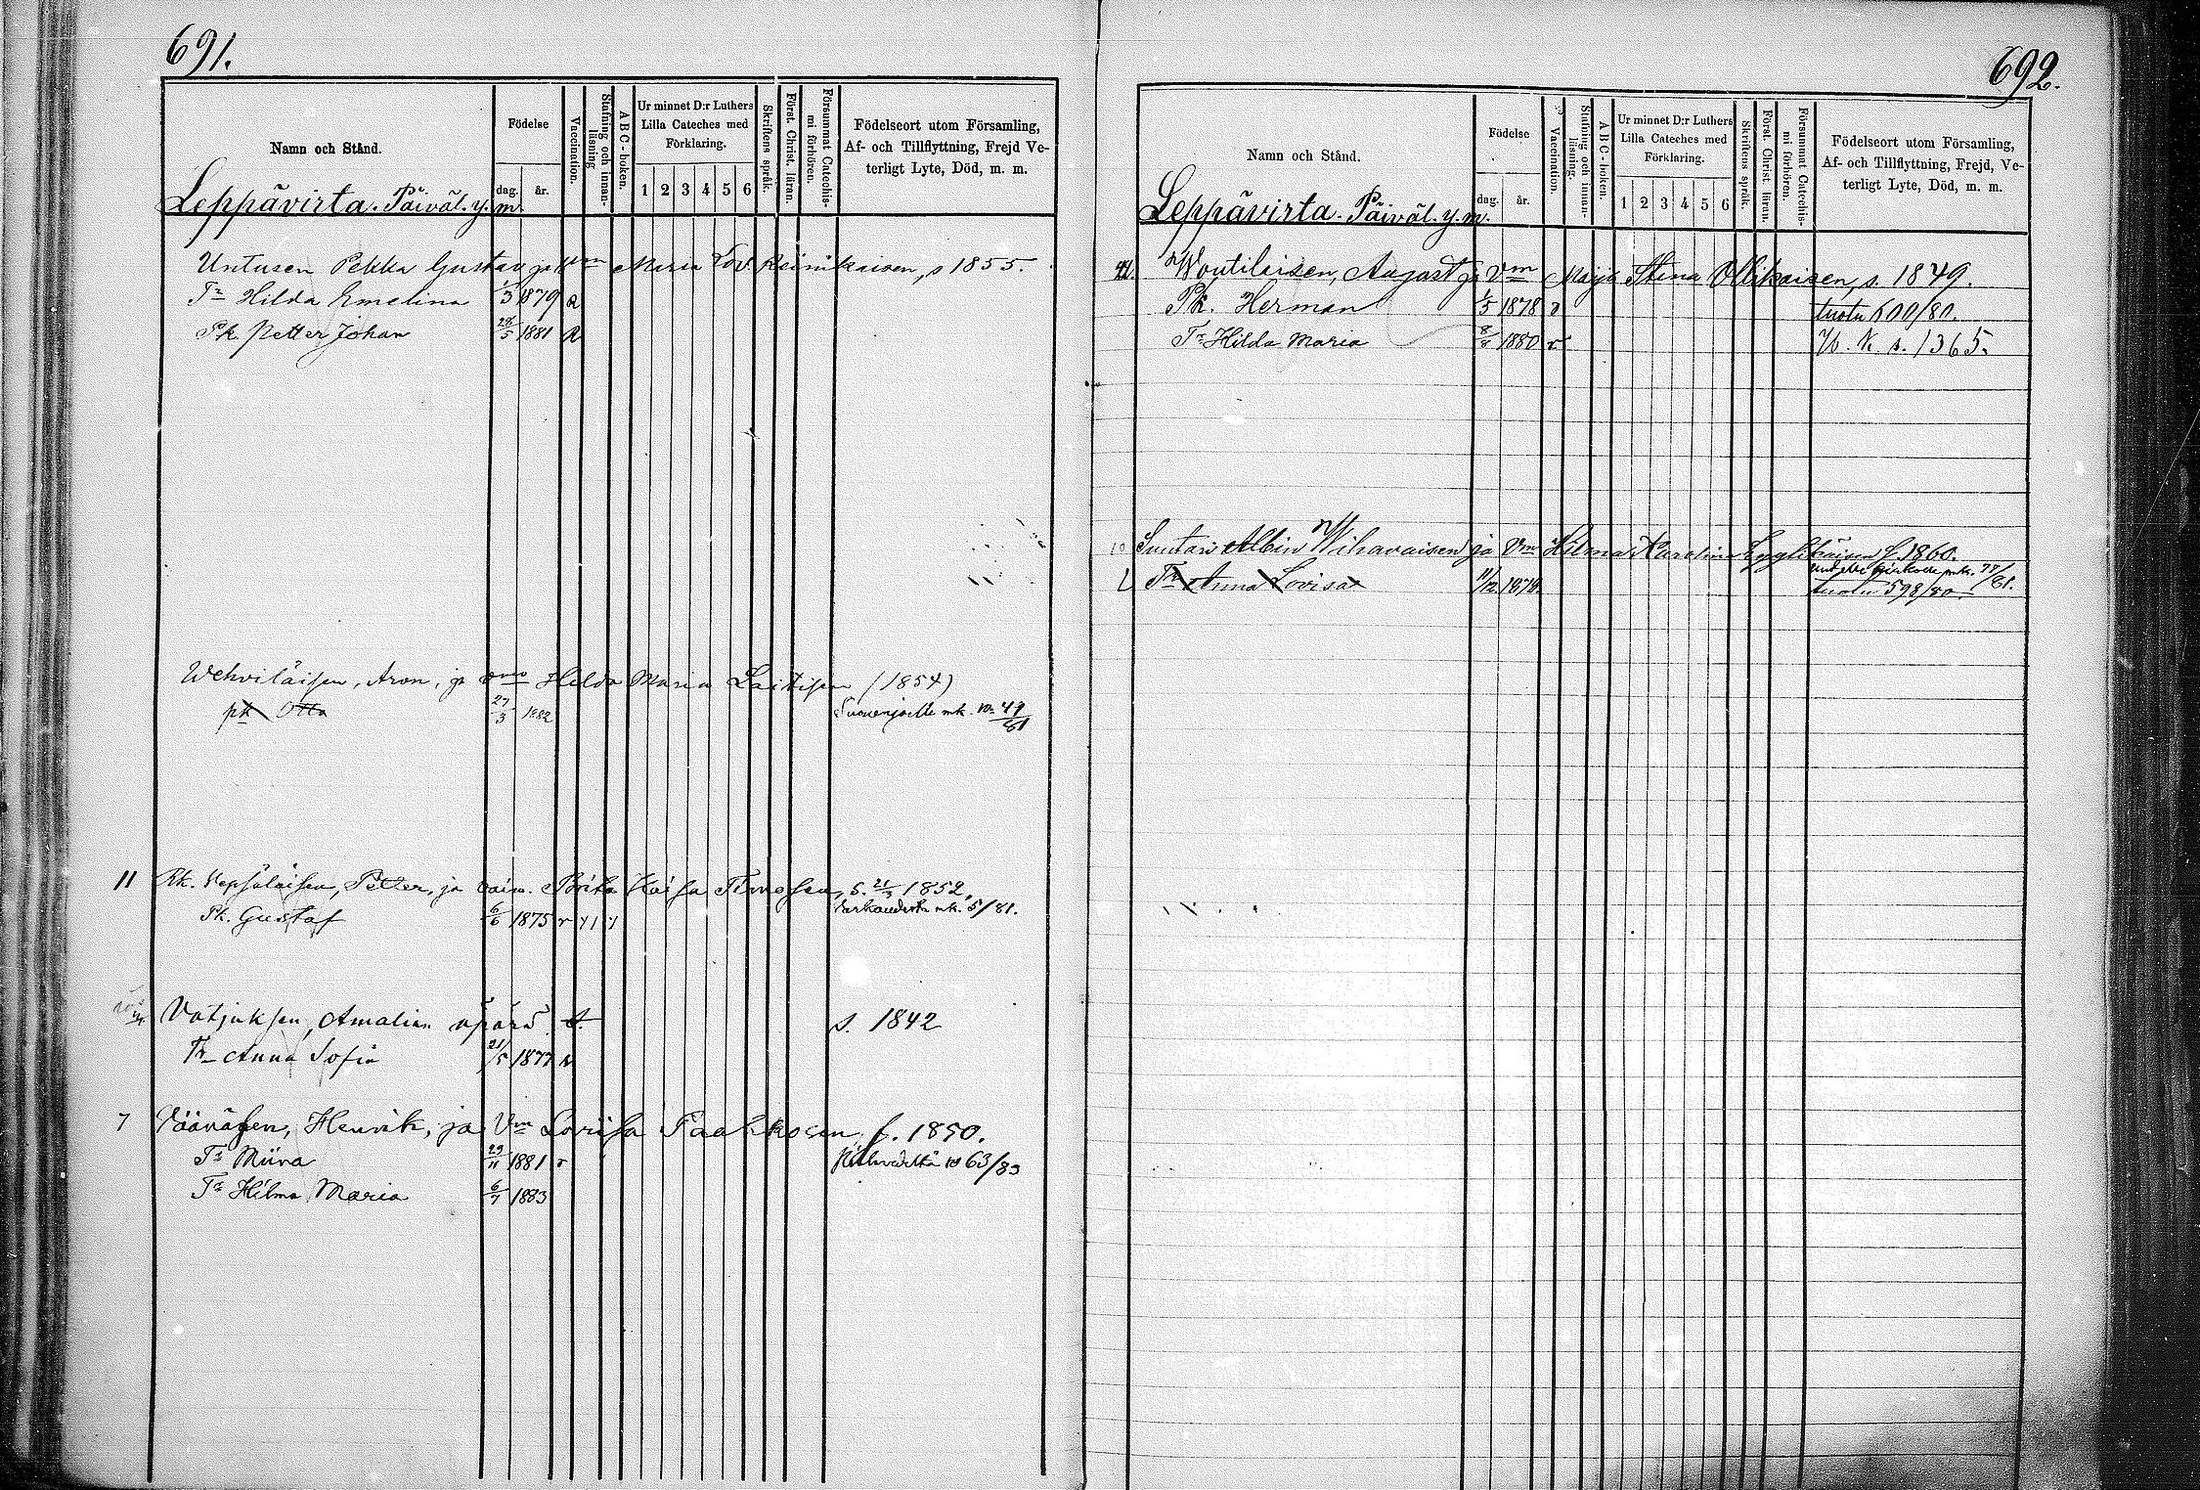 691.
Namn och Stånd.
Födelse
dag. år.
Vaccination.
Stafning och innanläsning
ABC-boken.
Ur minnet D:r Luthers Lilla Cateches med Förklaring.
1 2 3 4 5 6
Skriftens språk.
Först. Christ. läran.
Försummat Catechismi förhören.
Födelseort utom Församling, Af- och Tillflyttning, Frejd Veterligt Lyte, Död, m. m.
Leppävirta. Päiväl. y. m.
Untusen Pekka Gustav ja Vmo Maria Lov. Reinikaisen, s 1855.
Tr Hilda Emelina 1/3 1879 R
Pk. Petter Johan 28/5 1881 R
Wehviläisen, Aron, ja vmo Hilda Maria Laitisen (1854)
pk Otto 27/3 1882 Suonenjoelle mk. no 49/81
11 Rk. Vepsäläisen, Petter, ja vaim. Brita Kaisa Timosen, s. 21/3 1852.
Pk. Gustaf 6/6 1875 r Varkaudesta mk. 5/81.
Vatjuksen, Amalian äpärä s. 1842
Tr Anna Sofia 21/5 1877 r
7 Väänäsen, Henrik, ja Vm Lovisa Paakkosen, s. 1850.
Tr Miina 29/11 1881 r 63/83
Tr Hilma Maria 6/7 1883
692.
Namn och Stånd.
Födelse
dag. år.
Vaccination.
Stafning och innanläsning.
ABC-boken.
Ur minnet D:r Luthers Lilla Cateches med Förklaring.
1 2 3 4 5 6
Skriftens språk.
Först. Christ. läran.
Försummat Catechismi förhören.
Födelseort utom Församling, Af- och Tillflyttning, Frejd, Veterligt Lyte, Död, m. m.
Leppävirta. Päiväl. y. m.
41. Woutilaisen, August ja Vm Maija Stina Ollikaisen, s. 1849.
Pk. Herman 1/5 1878 tuotu 600/80.
Tr Hilda Maria 8/8 1880 r s. 1365.
10 Suutari Albin Wihavaisen ja Vm Hilma Karolina Lyytikäisen s. 1860.
Tr Anna Lovisa 11/12 1878. tuotu 598/80.